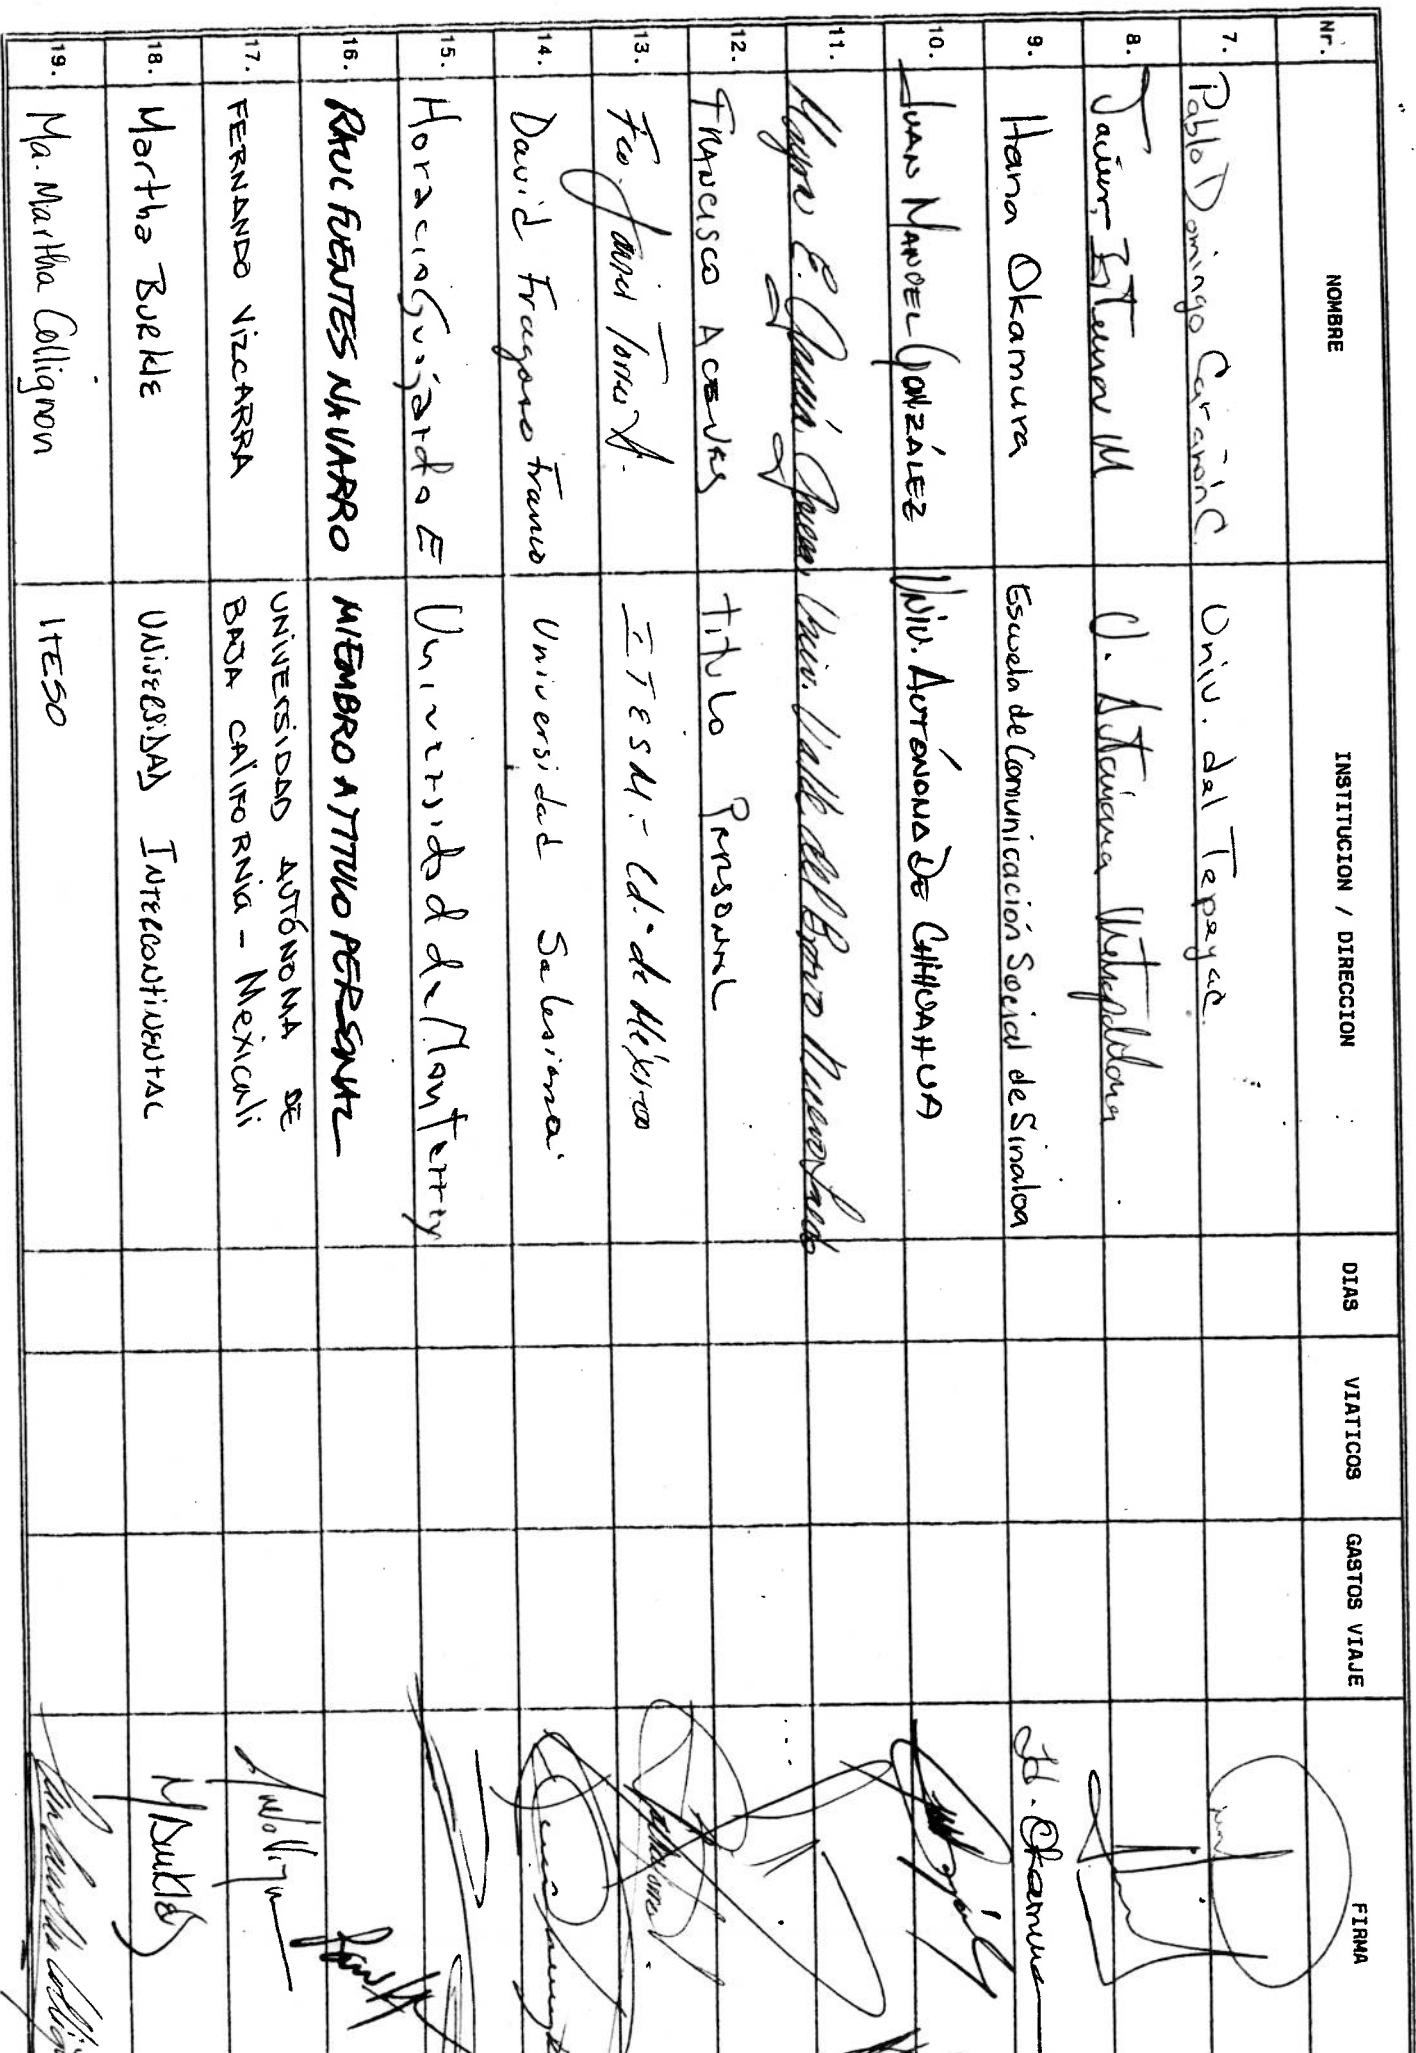 Nr. NOMBRE INSTITUCION / DIRECCION DIAS VIATICOS GASTOS VIAJE FIRMA
7. Pablo Domingo Carañón C. Univ. del Tepeyac.
8. Javier Esteinou M U. Autónoma Metropolitana
9. Hana Okamura Escuela de Comunicación Social de Sinaloa H. Okamura
10. JUAN MANUEL GONZÁLEZ UNIV. AUTÓNOMA DE CHIHUAHUA
11. E. Univ. Valle del Bravo Nuevo Laredo
12. FRANCISCO ACEVES TITULO PERSONAL
13. Fco. Javier Torres A. ITESM.- Cd. de México
14. David Fragoso Franco Universidad Salesiana
15. Horacio Guajardo E Universidad de Monterrey
16. RAUL FUENTES NAVARRO MIEMBRO A TITULO PERSONAL
17. FERNANDO VIZCARRA UNIVERSIDAD AUTÓNOMA DE
BAJA CALIFORNIA - MEXICALI
18. Martha BURKLE UNIVERSIDAD INTERCONTINENTAL MBurkle
19. Ma. Martha Collignon ITESO